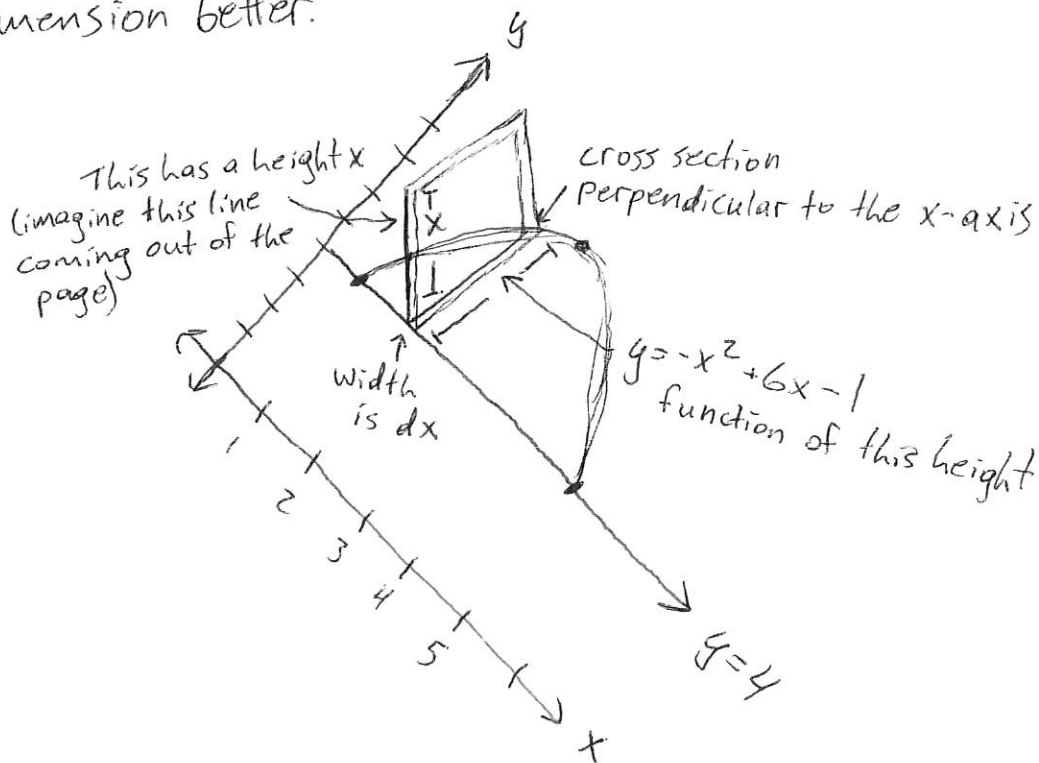 mension better.
y
This has a height x
(imagine this line
coming out of the
page)
cross section
perpendicular to the x-axis
x
width
is dx
y=-x²+6x-1
function of this height
1
2
3
4
5
y=4
x